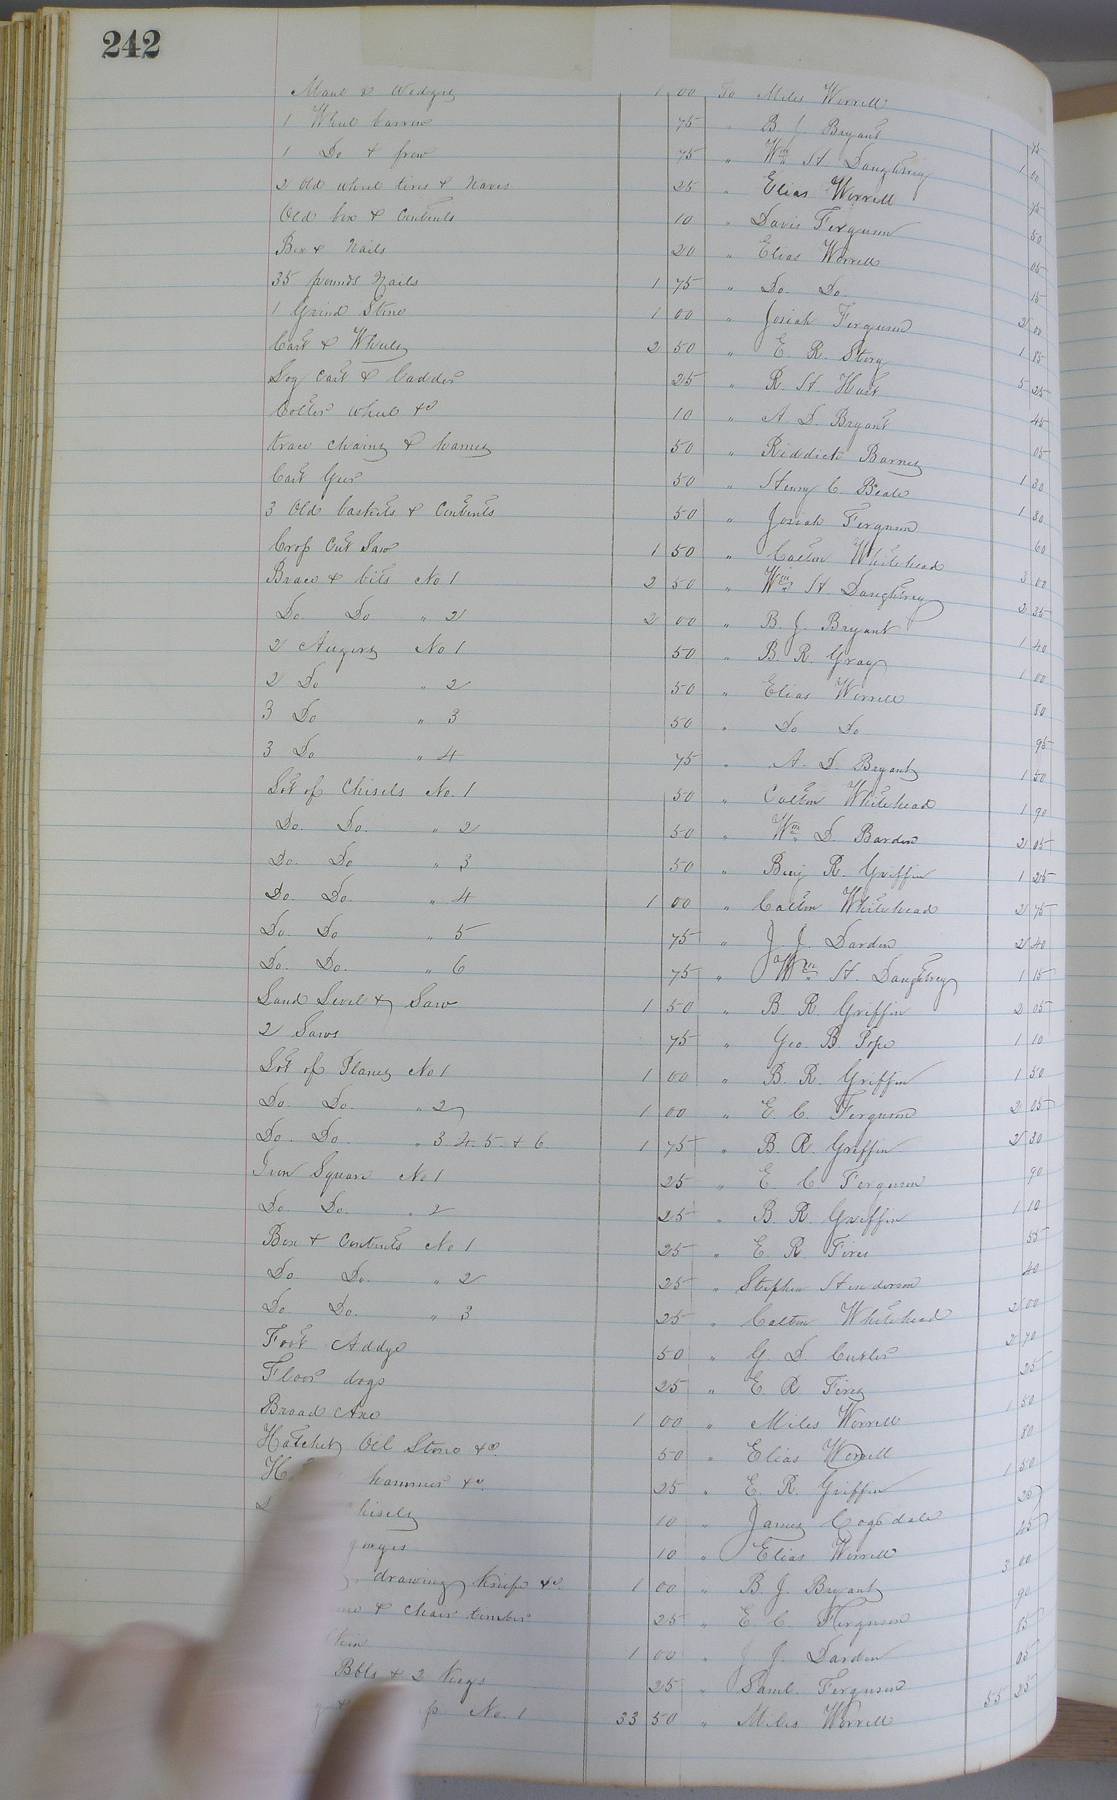 242
Maul & Wedges 1 00 To Miles Worrell 75
1 Wheel barrow 75 " B J Bryant 1 00
1 Do & frow 75 " Wm H. Daughtrey 75
2 Old wheel tires & Naves 25 " Elias Worrell 50
Old box & Contents 10 " Davis Ferguson 05
Box & Nails 20 " Elias Worrell 15
35 pounds Nails 1 75 " Do. Do. 2 00
1 Grind Stone 1 00 " Josiah Ferguson 1 85
Cart & Wheels 2 50 " E. R. Story 5 25
Log Cart & 25 " R. H. Hart 45
wheel &c 10 " A. D. Bryant 05
trace chains & hames 50 " Riddick Barnes 1 30
Cart Geer 50 " Henry C. Beale 1 30
3 Old baskets & Contents 50 " Josiah Ferguson 60
Crop Cut Saw 1 50 " Calton Whitehead 3 00
Brace & bits No 1 2 50 " Wm H Daughtrey 2 25
Do. Do " 2 2 00 " B. J. Bryant 1 40
2 Augers No 1 50 " B. R. Gray 1 00
2 Do " 2 50 " Elias Worrell 80
3 Do " 3 50 " Do Do 95
3 Do " 4 75 " A. D. Bryant 1 50
Lot of Chisels No. 1 50 " Calton Whitehead 1 90
Do. Do. " 2 50 " Wm D. Barden 2 05
Do. Do " 3 50 " Benj R. Griffin 1 25
Do. Do. " 4 1 00 " Calton Whitehead 2 75
Do. Do " 5 75 " J. J. Darden 2 40
Do. Do. " 6 75 " Wm H. Daughtrey 1 15
Sand Level & Saw 1 50 " B. R. Griffin 2 05
2 Saws 75 " Geo. B. Pope 1 10
Lot of Planes No 1 1 00 " B. R. Griffin 1 50
Do. Do. " 2 1 00 " E. C. Ferguson 2 05
Do. Do. " 3. 4. 5. & 6. 1 75 " B. R. Griffin 2 30
Iron Square No 1 25 " E. C Ferguson 90
Do Do. " 2 25 " B. R. Griffin 1 10
Box & Contents No 1 25 " E. R 55
Do. Do. " 2 25 " Stephen Henderson 40
Do. Do. " 3 25 " Calton Whitehead 2 00
Foot Addye 50 " G D. Cutler 2 70
Floor dogs 25 " E R 25
Broad Axe 1 00 " Miles Worrell 1 50
Hatchet, Oil Stone &c 50 " Elias Worrell 80
hammer &c. 25 " E. R. Griffin 1 50
10 " James Cogsdale
10 " Elias Worrell
drawing Knife &c. 1 00 " B J. Bryant 3 00
& chair timber 25 " E. C. Ferguson 90
1 00 " J J. Darden 85
Bbls & 2 Kegs 25 " Saml. Ferguson 05
No. 1 33 50 " Miles Worrell 55 25